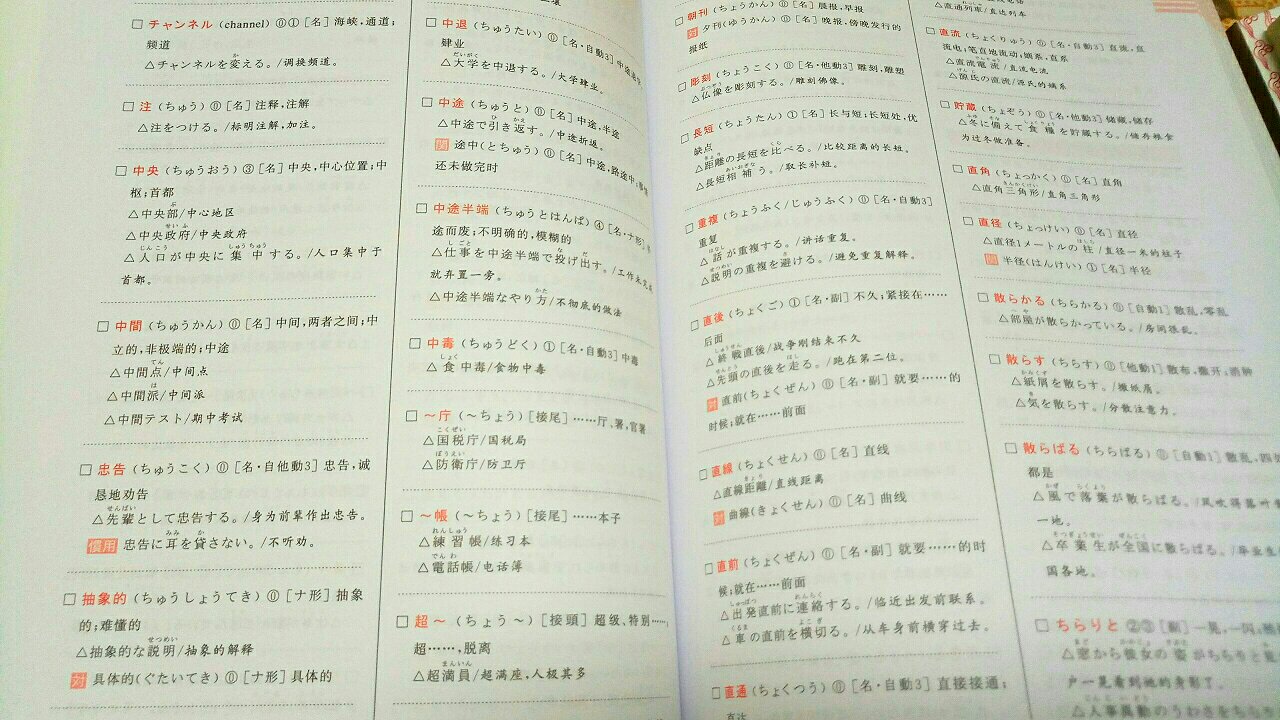 □ チャンネル (channel) ⓪① [名] 海峡,通道;
频道
△チャンネルを変える。/调换频道。
□ 注 (ちゅう) ⓪ [名] 注释;注解
△注をつける。/标明注解,加注。
□ 中央 (ちゅうおう) ③ [名] 中央,中心位置;中
枢;首都
△中央部/中心地区
△中央政府/中央政府
△人口が中央に集中する。/人口集中于
首都。
□ 中間 (ちゅうかん) ⓪ [名] 中间,两者之间;中
立的,非极端的;中途
△中間点/中间点
△中間派/中间派
△中間テスト/期中考试
□ 忠告 (ちゅうこく) ⓪ [名·自他動3] 忠告,诚
恳地劝告
△先輩として忠告する。/身为前辈作出忠告。
慣用 忠告に耳を貸さない。/不听劝。
□ 抽象的 (ちゅうしょうてき) ⓪ [ナ形] 抽象
的;难懂的
△抽象的な説明/抽象的解释
対 具体的(ぐたいてき) ⓪ [ナ形] 具体的
□ 中退 (ちゅうたい) ⓪ [名·自動3]
肄业
△大学を中退する。/大学肄业。
□ 中途 (ちゅうと) ⓪ [名] 中途,半途
△中途で引き返す。/中途折返。
関 途中(とちゅう) ⓪ [名] 中途,路途中;
还未做完时
□ 中途半端 (ちゅうとはんぱ) ④ [名·ナ形]
途而废;不明确的,模糊的
△仕事を中途半端で投げ出す。/工作未
就弃置一旁。
△中途半端なやり方/不彻底的做法
□ 中毒 (ちゅうどく) ① [名·自動3] 中毒
△食中毒/食物中毒
□ ～庁 (～ちょう) [接尾] ……厅、署,官署
△国税庁/国税局
△防衛庁/防卫厅
□ ～帳 (～ちょう) [接尾] ……本子
△練習帳/练习本
△電話帳/电话簿
□ 超～ (ちょう～) [接頭] 超级、特别……;
超……,脱离
△超満員/超满座,人极其多
□ 朝刊 (ちょうかん) ⓪ [名] 晨报,早报
対 夕刊(ゆうかん) ⓪ [名] 晚报,傍晚发行的
报纸
□ 彫刻 (ちょうこく) ⓪ [名·他動3] 雕刻,雕塑
△仏像を彫刻する。/雕刻佛像。
□ 長短 (ちょうたん) ① [名] 长与短;长短处,优
缺点
△距離の長短を比べる。/比较距离的长短。
△長短相補う。/取长补短。
□ 重複 (ちょうふく/じゅうふく) ⓪ [名·自動3]
重复
△話が重複する。/讲话重复。
△説明の重複を避ける。/避免重复解释。
□ 直後 (ちょくご) ① [名·副] 不久;紧接在……
后面
△終戦直後/战争刚结束不久
△先頭の直後を走る。/跑在第二位。
対 直前(ちょくぜん) ⓪ [名·副] 就要……的
时候;就在……前面
□ 直線 (ちょくせん) ⓪ [名] 直线
△直線距離/直线距离
対 曲線(きょくせん) ⓪ [名] 曲线
□ 直前 (ちょくぜん) ⓪ [名·副] 就要……的时
候;就在……前面
△出発直前に連絡する。/临近出发前联系。
△車の直前を横切る。/从车身前横穿过去。
□ 直通 (ちょくつう) ⓪ [名·自動3] 直接接通;
直达
△直通列車/直达列车
□ 直流 (ちょくりゅう) ⓪ [名·自動3] 直流,直
流电;笔直地流动;嫡系,直系
△直流電流/直流电流
△源氏の直流/源氏的嫡系
□ 貯蔵 (ちょぞう) ⓪ [名·他動3] 储藏,储存
△冬に備えて食糧を貯蔵する。/储存粮食
为过冬做准备。
□ 直角 (ちょっかく) ⓪ [名] 直角
△直角三角形/直角三角形
□ 直径 (ちょっけい) ⓪ [名] 直径
△直径1メートルの柱/直径一米的柱子
関 半径(はんけい) ① [名] 半径
□ 散らかる (ちらかる) ⓪ [自動1] 散乱,零乱
△部屋が散らかっている。/房间很乱。
□ 散らす (ちらす) ⓪ [他動1] 散布,散开;消肿
△紙屑を散らす。/撒纸屑。
△気を散らす。/分散注意力。
□ 散らばる (ちらばる) ⓪ [自動1] 散乱,四处
都是
△風で落葉が散らばる。/风吹得落叶
一地。
△卒業生が全国に散らばる。/毕业生
国各地。
□ ちらりと ②③ [副] 一晃,一闪;
△窓から彼女の姿がちらりと見
户一晃看到她的身影了。
△人事異動のうわさをちら